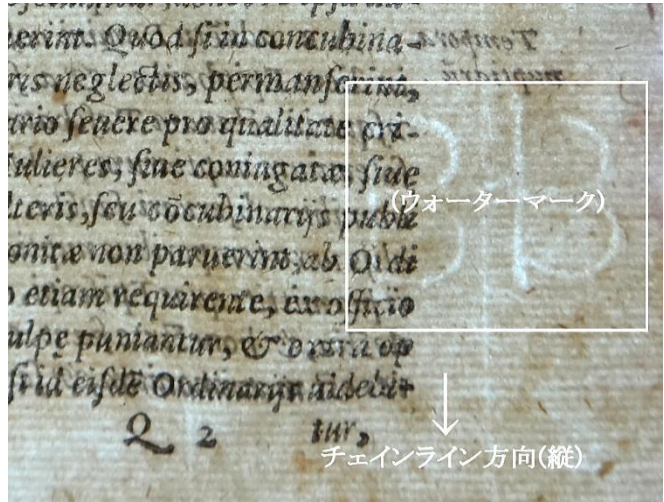 uerint. Quod ſi in concubina-
ris neglectis, permanſerint,
ario ſeuere pro qualitate cri-
ulieres, ſiue coniugatæ, ſiue
lteris, ſeu cōcubinarijs publi
onitæ non paruerint, ab Ordi
o etiam requirente, ex officio
ulpę puniantur, & extra op
ſi id eiſdē Ordinarijs uidebi-
Q 2 tur,
Tempora
nuptiarū
(ウォーターマーク)
チェインライン方向(縦)